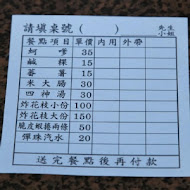 請填桌號( ) 先生 小姐
餐點項目 單價 內用 外帶
蚵嗲 35
鹹粿 15
蕃薯 15
米大腸 30
四神湯 30
炸花枝小份 100
炸花枝大份 150
脆皮蝦捲兩條 50
彈珠汽水 20
送完餐點後再付款